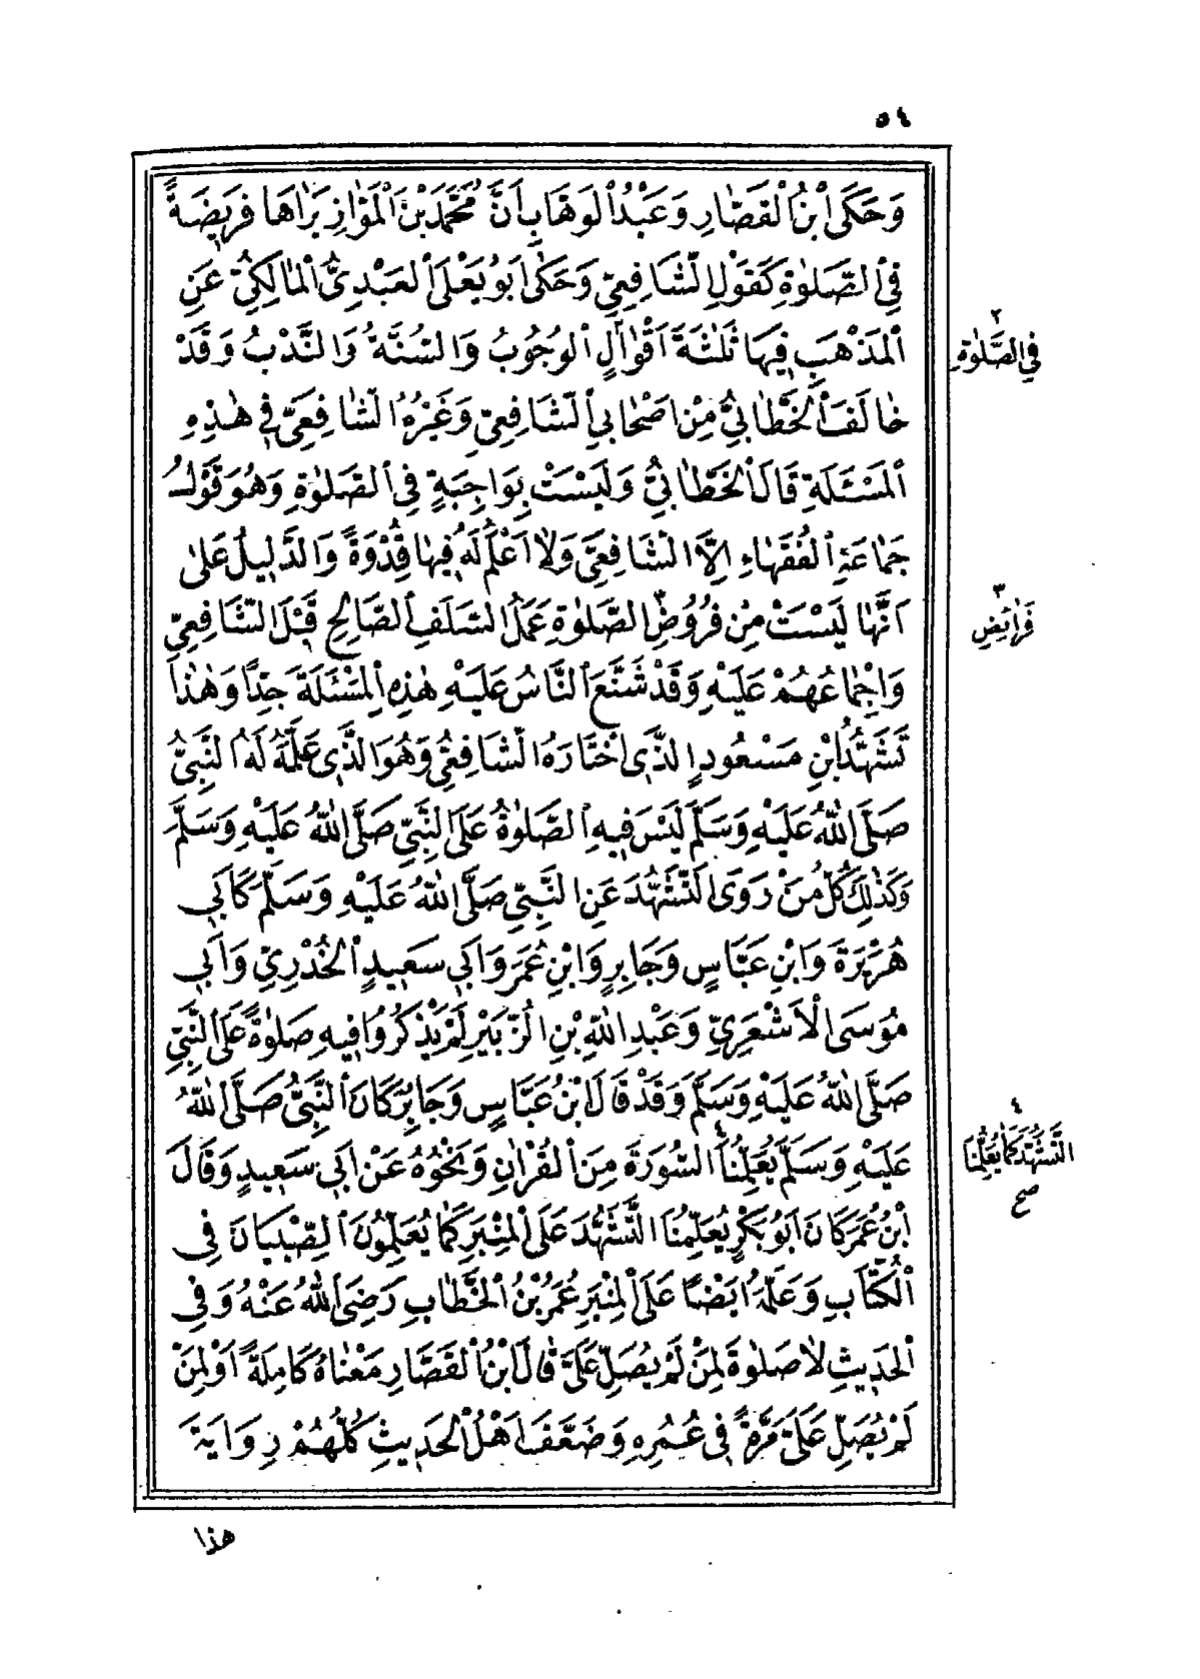 ٥٤
وَحَكَى ابْنُ الْقَصَّارِ وَعَبْدُ الْوَهَّابِ أَنَّ مُحَمَّدَ بْنَ الْمَوَّازِ يَرَاهَا فَرِيضَةً
فِي الصَّلٰوةِ كَقَوْلِ الشَّافِعِيِّ وَحَكٰى اَبُو يَعْلَى الْعَبْدِيُّ الْمَالِكِيُّ عَنِ
الْمَذْهَبِ فِيهَا ثَلٰثَةَ اَقْوَالٍ الْوُجُوبُ وَالسُّنَّةُ وَالنَّدْبُ وَقَدْ
فِي الصَّلٰوةِ ٢
خَالَفَ الْخَطَّابِيُّ مِنْ اَصْحَابِ الشَّافِعِيِّ وَغَيْرُهُ الشَّافِعِيَّ فِي هٰذِهِ
الْمَسْئَلَةِ قَالَ الْخَطَّابِيُّ وَلَيْسَتْ بِوَاجِبَةٍ فِي الصَّلٰوةِ وَهُوَ قَوْلُ
جَمَاعَةِ الْفُقَهَاءِ اِلَّا الشَّافِعِيَّ وَلَا اَعْلَمُ لَهُ فِيهَا قُدْوَةً وَالدَّلِيلُ عَلٰى
اَنَّهَا لَيْسَتْ مِنْ فُرُوضِ الصَّلٰوةِ عَمَلُ السَّلَفِ الصَّالِحِ قَبْلَ الشَّافِعِيِّ
فَرَائِضِ ٣
وَاِجْمَاعُهُمْ عَلَيْهِ وَقَدْ شَنَّعَ النَّاسُ عَلَيْهِ هٰذِهِ الْمَسْئَلَةَ جِدًّا وَهٰذَا
تَشَهُّدُ ابْنِ مَسْعُودٍ الَّذِي اخْتَارَهُ الشَّافِعِيُّ وَهُوَ الَّذِي عَلَّمَهُ لَهُ النَّبِيُّ
صَلَّى اللّٰهُ عَلَيْهِ وَسَلَّمَ لَيْسَ فِيهِ الصَّلٰوةُ عَلَى النَّبِيِّ صَلَّى اللّٰهُ عَلَيْهِ وَسَلَّمَ
وَكَذٰلِكَ كُلُّ مَنْ رَوَى التَّشَهُّدَ عَنِ النَّبِيِّ صَلَّى اللّٰهُ عَلَيْهِ وَسَلَّمَ كَاَبِي
هُرَيْرَةَ وَابْنِ عَبَّاسٍ وَجَابِرٍ وَابْنِ عُمَرَ وَاَبِي سَعِيدٍ الْخُدْرِيِّ وَاَبِي
مُوسَى الْاَشْعَرِيِّ وَعَبْدِ اللّٰهِ بْنِ الزُّبَيْرِ لَمْ يَذْكُرُوا فِيهِ صَلٰوةً عَلَى النَّبِيِّ
صَلَّى اللّٰهُ عَلَيْهِ وَسَلَّمَ وَقَدْ قَالَ ابْنُ عَبَّاسٍ وَجَابِرٌ كَانَ النَّبِيُّ صَلَّى اللّٰهُ
عَلَيْهِ وَسَلَّمَ يُعَلِّمُنَا ٤ السُّورَةَ مِنَ الْقُرْاٰنِ وَنَحْوُهُ عَنْ اَبِي سَعِيدٍ وَقَالَ
٤ التَّشَهُّدَ كَمَا يُعَلِّمُنَا
صح
ابْنُ عُمَرَ كَانَ اَبُو بَكْرٍ يُعَلِّمُنَا التَّشَهُّدَ عَلَى الْمِنْبَرِ كَمَا يُعَلِّمُونَ الصِّبْيَانَ فِي
الْكُتَّابِ وَعَلَّمَهُ اَيْضًا عَلَى الْمِنْبَرِ عُمَرُ بْنُ الْخَطَّابِ رَضِيَ اللّٰهُ عَنْهُ وَفِي
الْحَدِيثِ لَا صَلٰوةَ لِمَنْ لَمْ يُصَلِّ عَلَيَّ قَالَ ابْنُ الْقَصَّارِ مَعْنَاهُ كَامِلَةً اَوْ لِمَنْ
لَمْ يُصَلِّ عَلَيَّ مَرَّةً فِي عُمُرِهِ وَضَعَّفَ اَهْلُ الْحَدِيثِ كُلُّهُمْ رِوَايَةَ
هذا